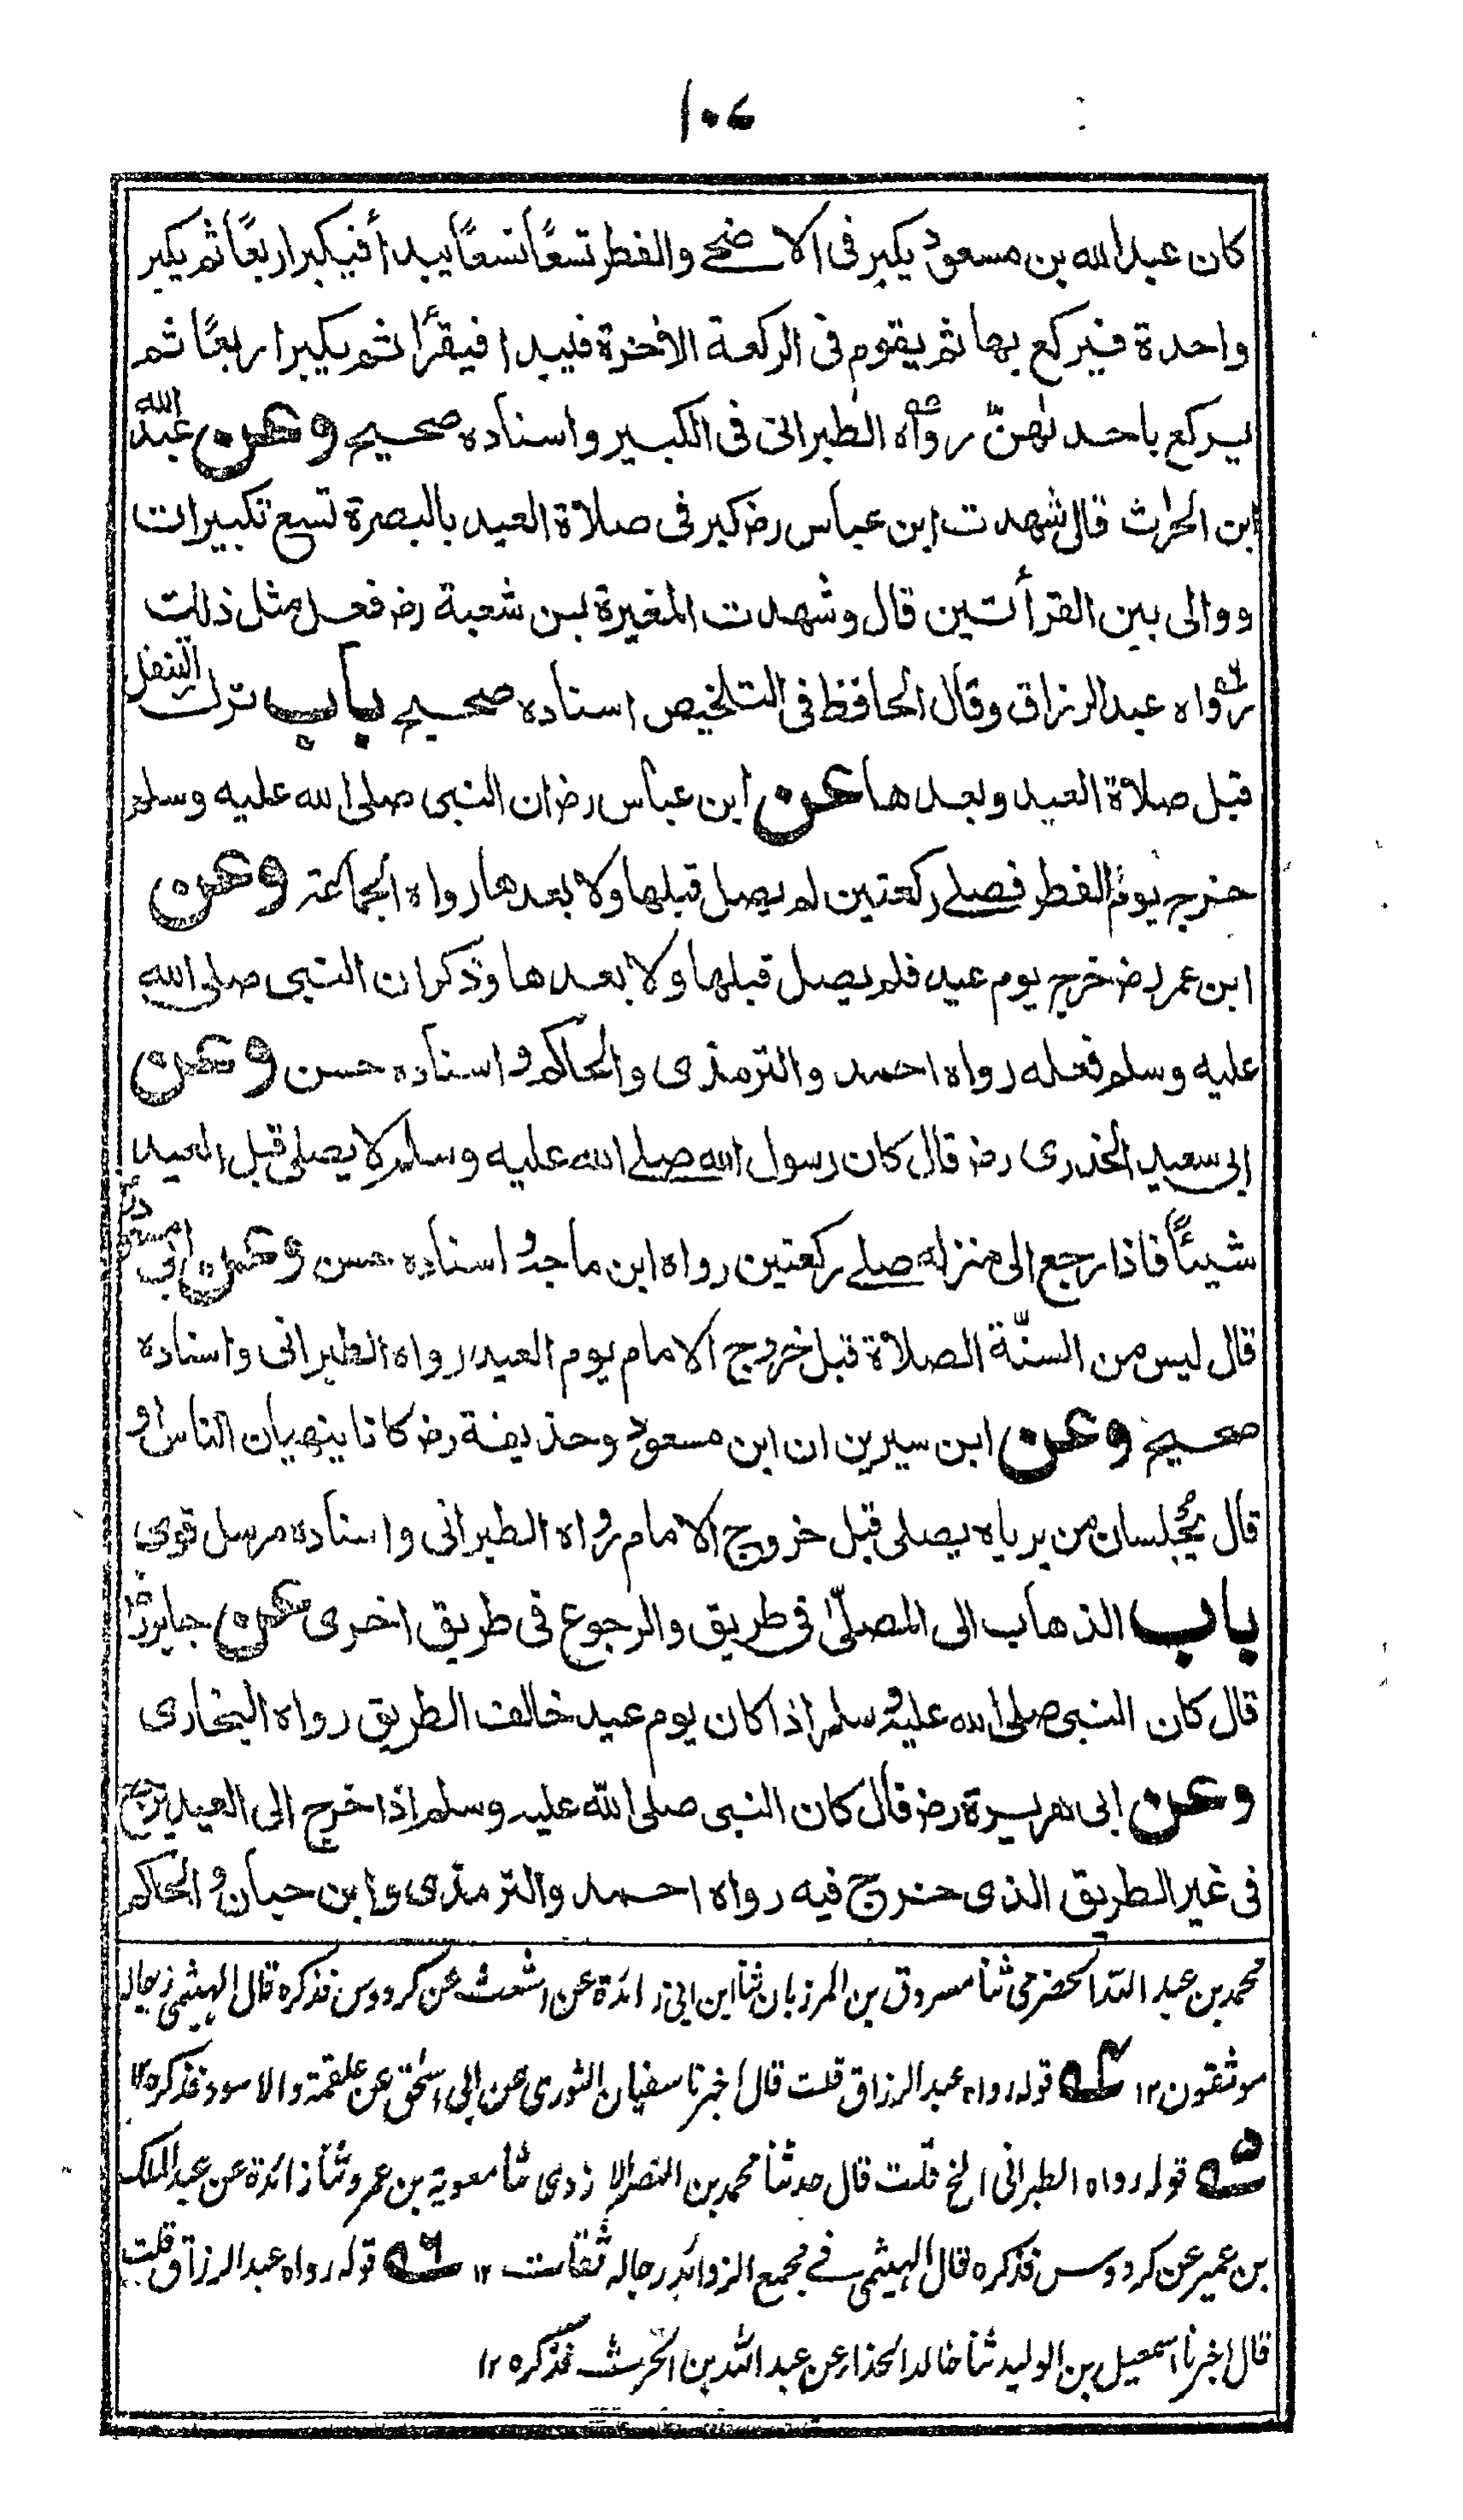 ١٠٧
كان عبد الله بن مسعود يكبر فى الاضحى والفطر تسعًا تسعًا يبدأ فيكبر اربعًا ثم يكبر
واحدة فيركع بها ثم يقوم فى الركعة الاخرة فيبدا فيقرأ ثم يكبر اربعًا ثم
يركع باحدٰهنّ رواه الطبرانى فى الكبير واسناده صحيح وعن عبد الله
ابن الحٰرث قال شهدت ابن عباس رض كبر فى صلاة العيد بالبصرة تسع تكبيرات
ووالى بين القرأتين قال وشهدت المغيرة بن شعبة رض فعل مثل ذلك
رواه عبد الرزاق وقال الحافظ فى التلخيص اسناده صحيح باب ترك التنفل
قبل صلاة العيد وبعدها عن ابن عباس رض ان النبى صلى الله عليه وسلم
خرج يوم الفطر فصلى ركعتين لم يصل قبلها ولا بعدها رواه الجماعة وعن
ابن عمر رض خرج يوم عيد فلم يصل قبلها ولا بعدها وذكر ان النبى صلى الله
عليه وسلم فعله رواه احمد والترمذى والحاكم واسناده حسن وعن
ابى سعيد الخدرى رض قال كان رسول الله صلى الله عليه وسلم لا يصلى قبل العيد
شيئًا فاذا رجع الى منزله صلى ركعتين رواه ابن ماجة واسناده حسن وعن ابى مسعود رض
قال ليس من السنّة الصلاة قبل خروج الامام يوم العيد رواه الطبرانى واسناده
صحيح وعن ابن سيرين ان ابن مسعود وحذيفة رض كانا ينهيان الناس او
قال يجلسان من يرياه يصلى قبل خروج الامام رواه الطبرانى واسناده مرسل قوى
باب الذهاب الى المصلّى فى طريق والرجوع فى طريق اخرى عن جابر رض
قال كان النبى صلى الله عليه وسلم اذا كان يوم عيد خالف الطريق رواه البخارى
وعن ابى هريرة رض قال كان النبى صلى الله عليه وسلم اذا خرج الى العيد يرجع
فى غير الطريق الذى خرج فيه رواه احمد والترمذى وابن حبان والحاكم
محمد بن عبد الله الحضرمى ثنا مسروق بن المرزبان ثنا ابن ابى زائدة عن اشعث عن كردوس فذكره قال الهيثمى رجاله
موثقون ١٢ ٤ه قوله رواه عبد الرزاق قلت قال اخبرنا سفيان الثورى عن ابى اسحٰق عن علقمة والاسود فذكره ١٢
٥ه قوله رواه الطبرانى الخ قلت قال حدثنا محمد بن النضر الازدى ثنا معوية بن عمرو ثنا زائدة عن عبد الملك
بن عمير عن كردوس فذكره قال الهيثمى فى مجمع الزوائد رجاله ثقات ١٢ ٦ه قوله رواه عبد الرزاق قلت
قال اخبرنا اسمعيل بن الوليد ثنا خالد الحذاء عن عبد الله بن الحٰرث فذكره ١٢